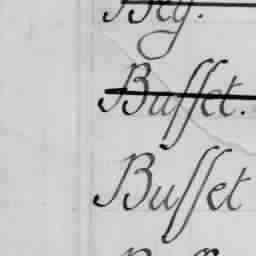 Bey.
Buffet.
Buffet